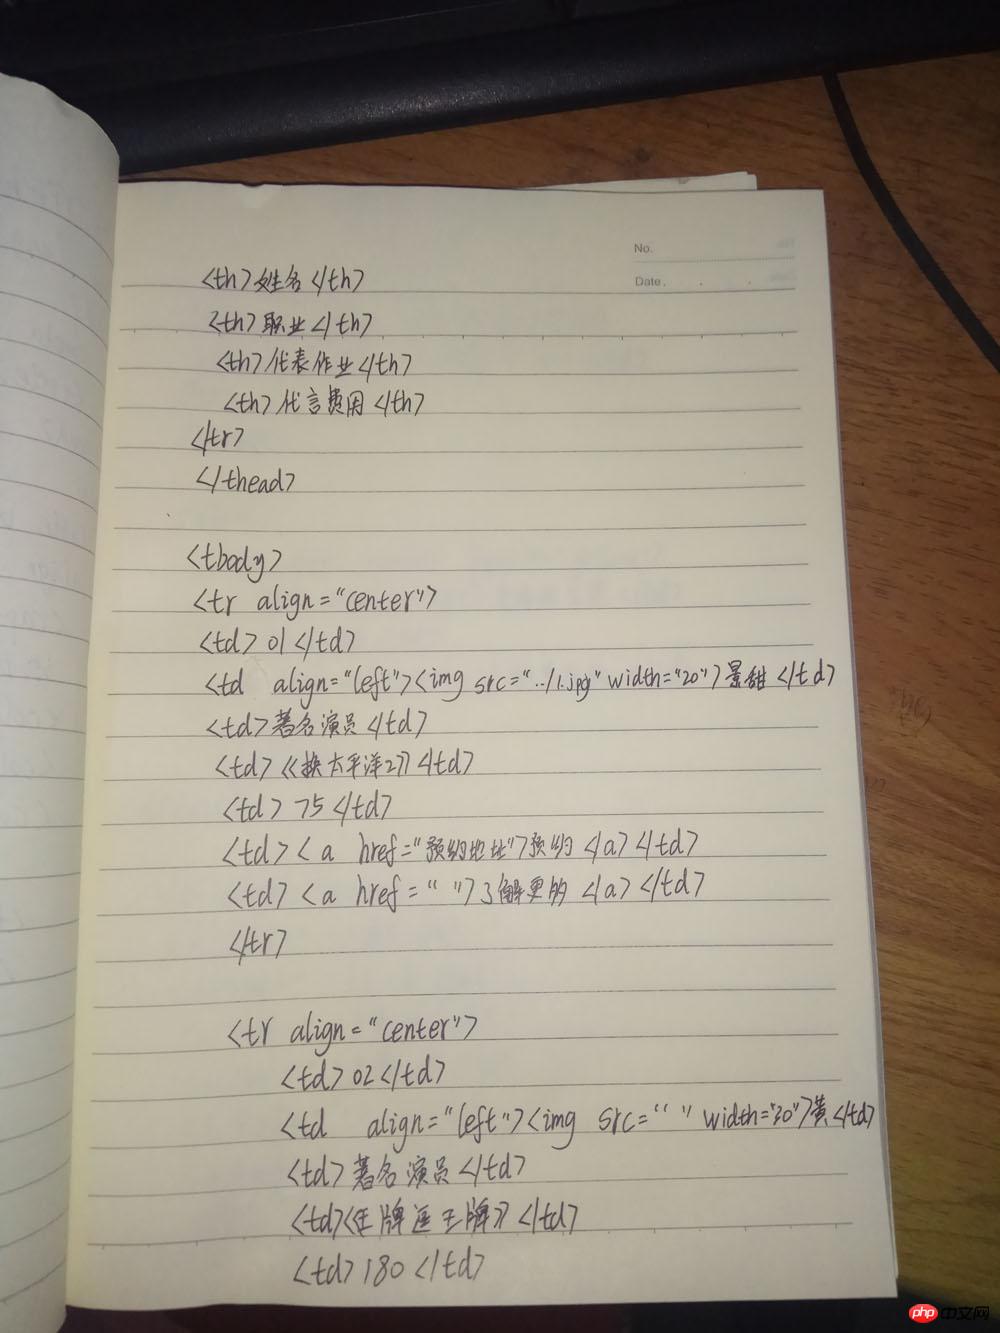 No.
Date.
<th>姓名</th>
<th>职业</th>
<th>代表作业</th>
<th>代言费用</th>
</tr>
</thead>
<tbody>
<tr align="center">
<td>01</td>
<td align="left"><img src="../1.jpg" width="20">景甜</td>
<td>著名演员</td>
<td>《换太平洋2》</td>
<td>75</td>
<td><a href="预约地址">预约</a></td>
<td><a href=" ">了解更的</a></td>
</tr>
<tr align="center">
<td>02</td>
<td align="left"><img src=" " width="30">黄</td>
<td>著名演员</td>
<td>《王牌逗王牌》</td>
<td>180</td>
php中文网